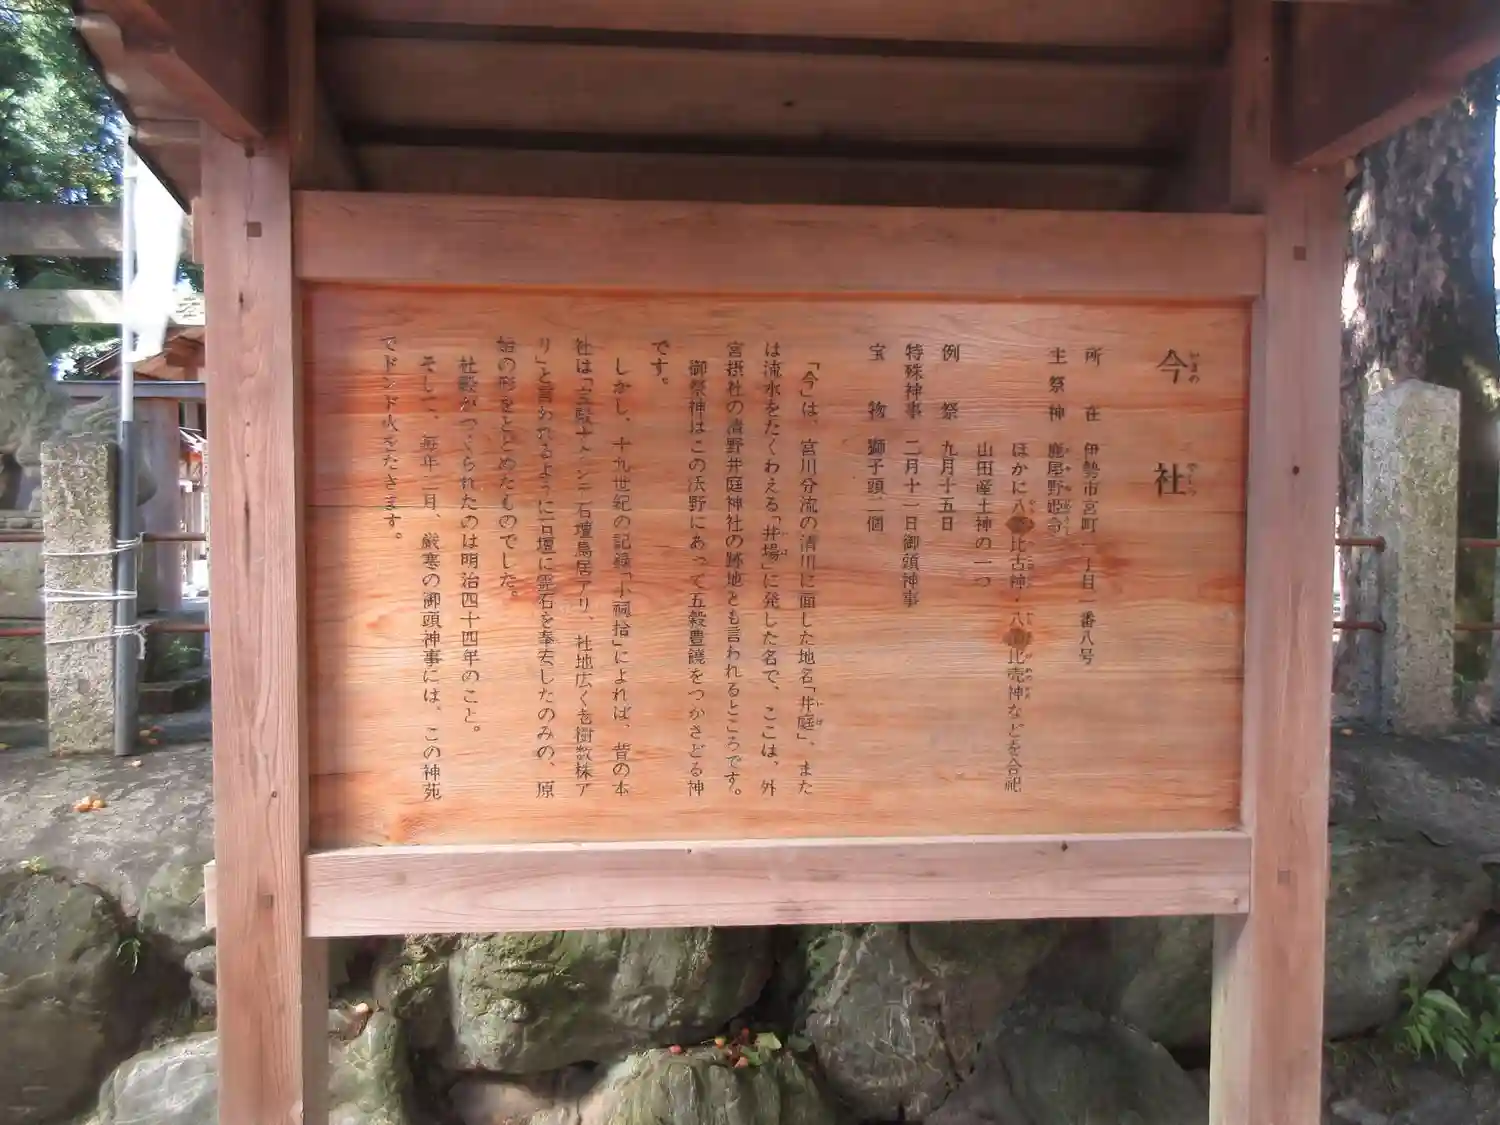 今社
所在 伊勢市宮町一丁目一番八号
主祭神 鹿屋野姫命
ほかに八比古神・八比売神などを合祀
山田産土神の一つ
例祭 九月十五日
特殊神事 二月十一日御頭神事
宝物 獅子頭一個
「今」は、宮川分流の清川に面した地名「井庭」、また
は流水をたくわえる「井場」に発した名で、ここは、外
宮摂社の清野井庭神社の跡地とも言われるところです。
御祭神はこの浜野にあって五穀豊饒をつかさどる神
です。
しかし、十九世紀の記録「小祠拾」によれば、昔の本
社は「宝殿ナクシテ石壇鳥居アリ、社地広く老樹数株ア
リ」と言われるように石壇に霊石を奉安したのみの、原
始の形をとどめたものでした。
社殿がつくられたのは明治四十四年のこと。
そして、毎年二月、厳寒の御頭神事には、この神苑
でドンド火をたきます。